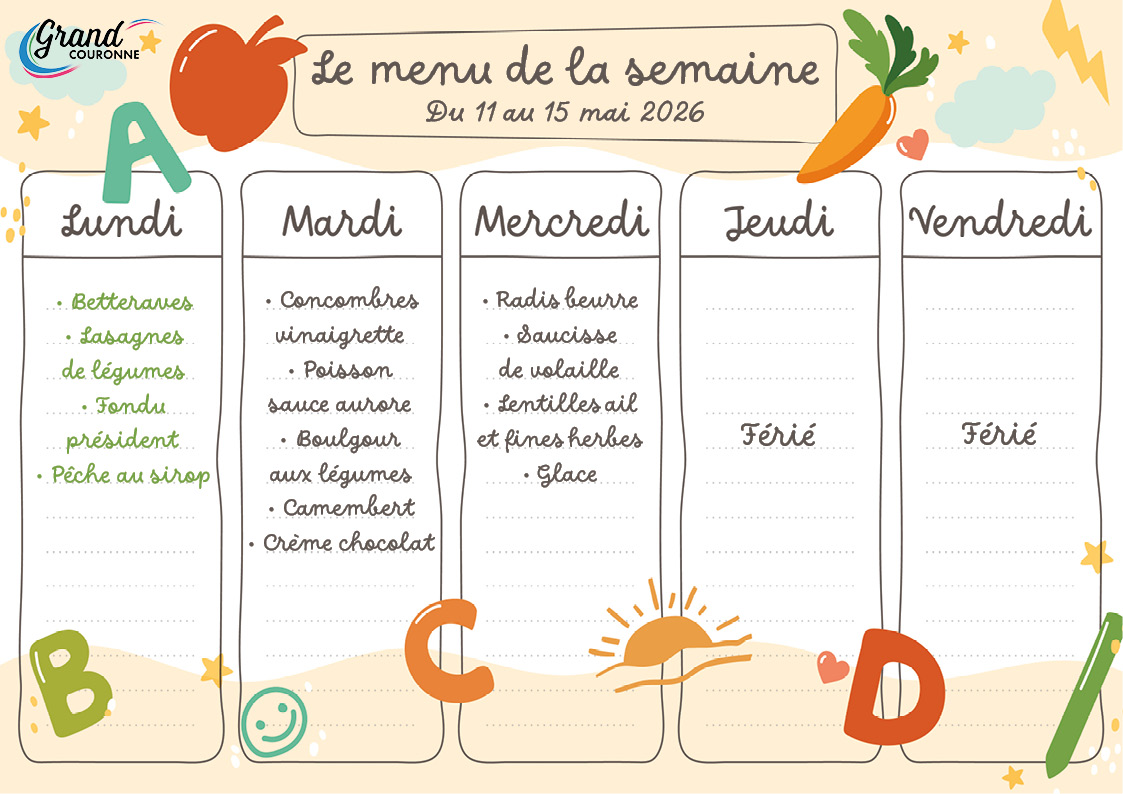 Grand
COURONNE
Le menu de la semaine
Du 11 au 15 mai 2026
A
Lundi
• Betteraves
• Lasagnes
de légumes
• Fondu
président
• Pêche au sirop
Mardi
• Concombres
vinaigrette
• Poisson
sauce aurore
• Boulgour
aux légumes
• Camembert
• Crème chocolat
Mercredi
• Radis beurre
• Saucisse
de volaille
• Lentilles ail
et fines herbes
• Glace
Jeudi
Férié
Vendredi
Férié
B
C
D